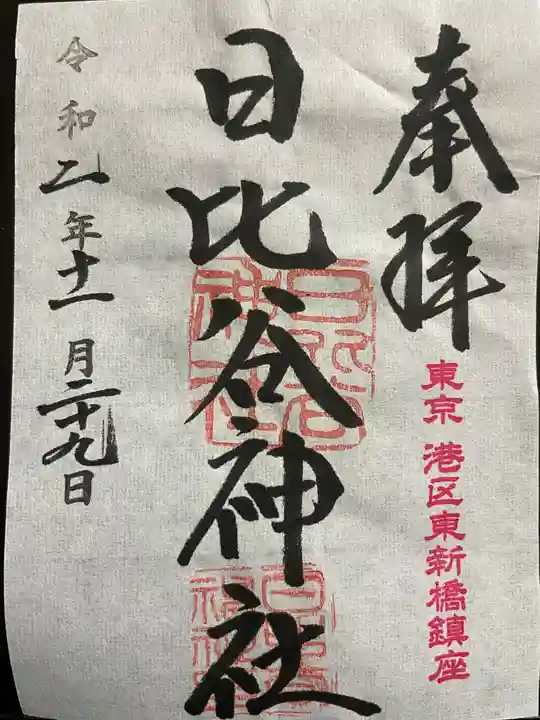 奉拝
東京 港区東新橋鎮座
日比谷神社
日比谷神社
令和二年十一月二十九日